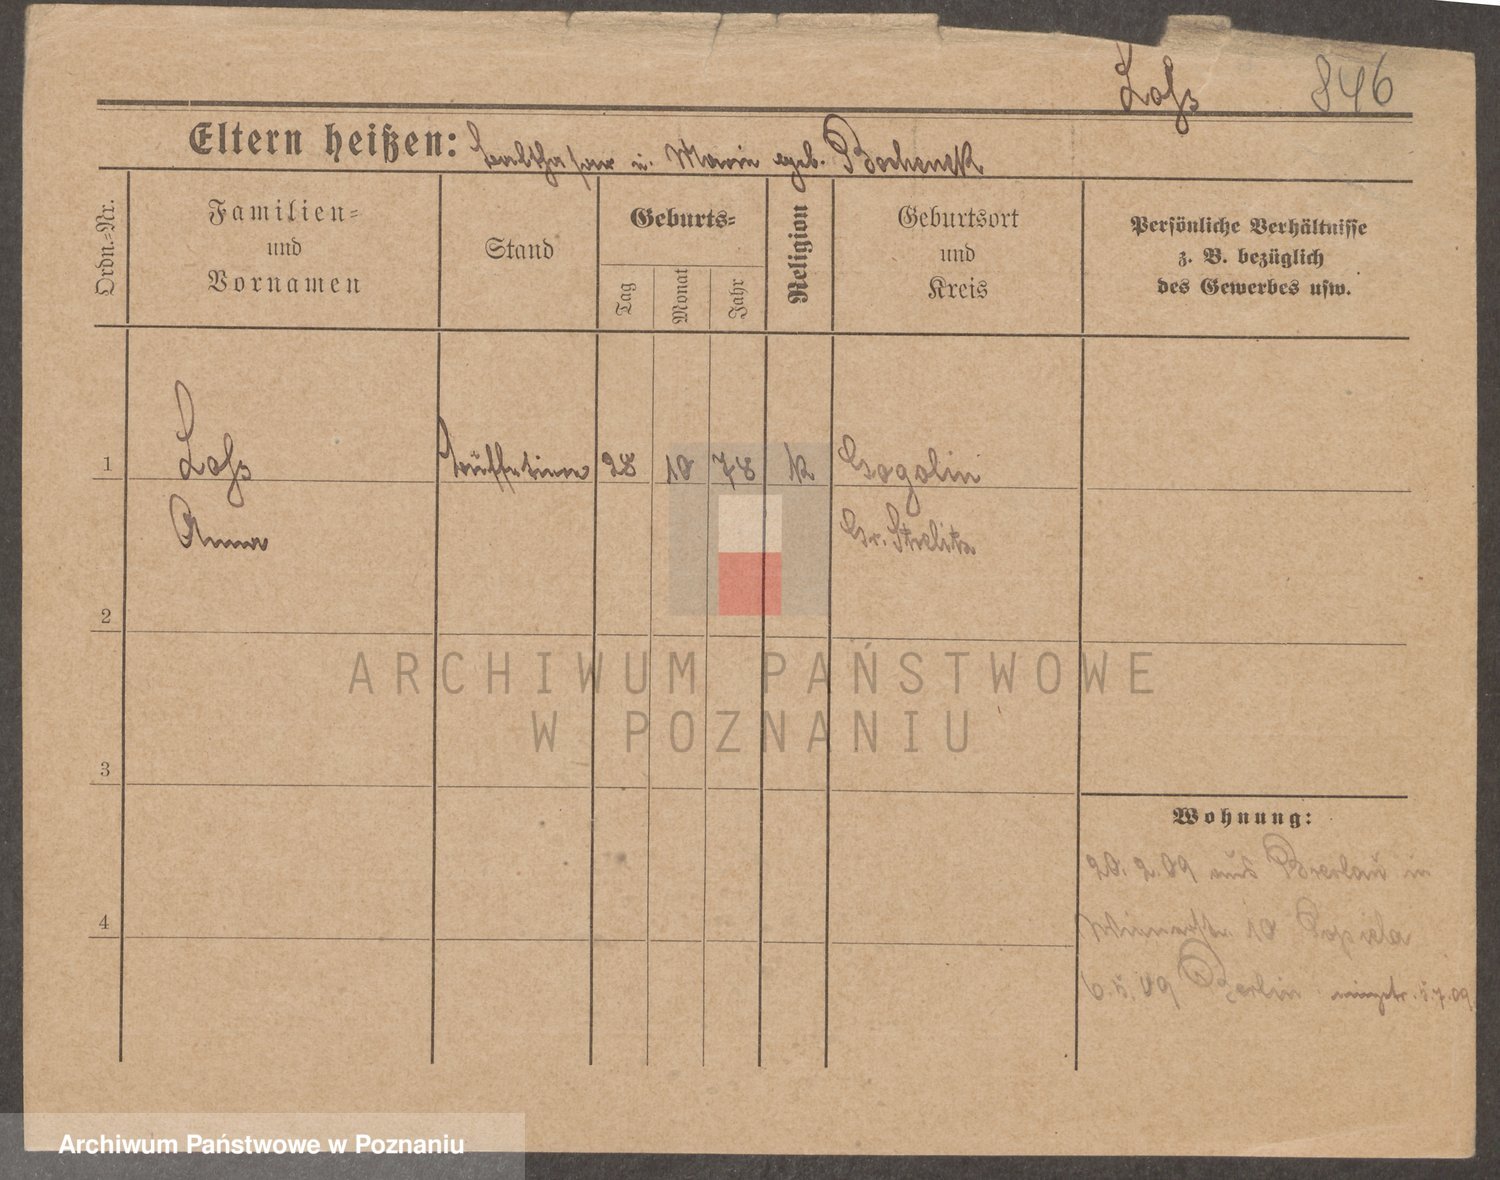 Loß 846
Eltern heißen: Balthasar u. Marie geb. Bochenek
Ordn.=Nr.
Familien=
und
Vornamen
Stand
Geburts=
Tag
Monat
Jahr
Religion
Geburtsort
und
Kreis
Persönliche Verhältnisse
z. B. bezüglich
des Gewerbes usw.
1 Loß 28 10 78 k Gogolin
Anna Gr. Strelitz
2
ARCHIWUM PAŃSTWOWE
W POZNANIU
3
Wohnung:
20. 2. 09 aus Breslau in
4
10 Popiela
6. 5. 09 Berlin 5.7.09
Archiwum Państwowe w Poznaniu